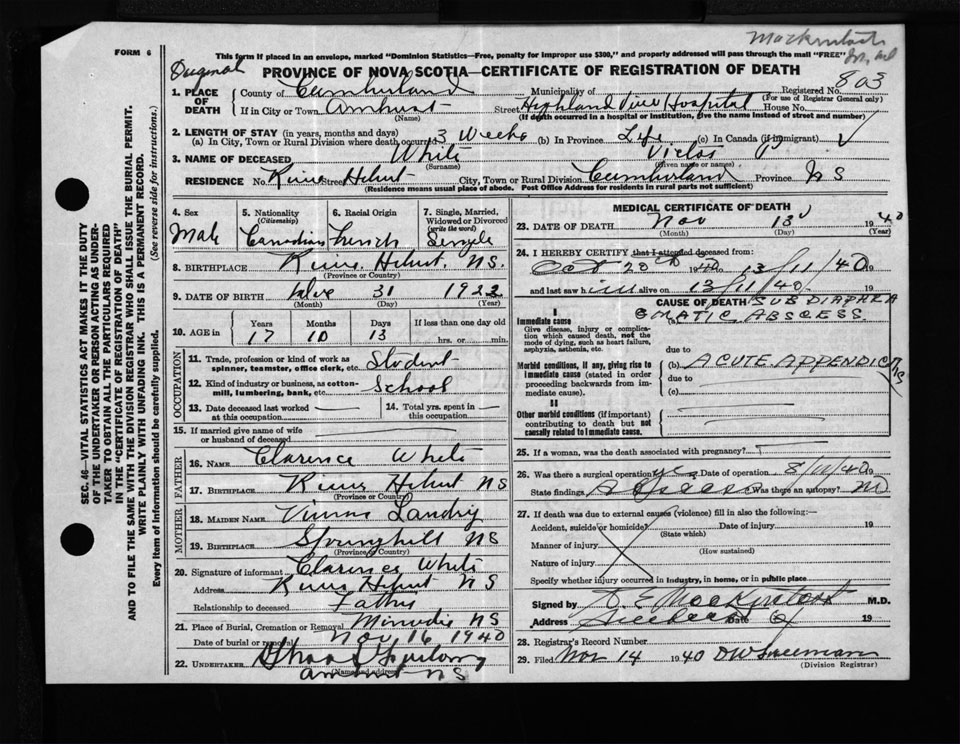 FORM 6
This form if placed in an envelope, marked "Dominion Statistics—Free, penalty for improper use $300," and properly addressed will pass through the mail "FREE"
Mackintosh
Original
PROVINCE OF NOVA SCOTIA—CERTIFICATE OF REGISTRATION OF DEATH
803
1. PLACE OF DEATH
County of Cumberland Municipality of Registered No.
(For use of Registrar General only)
If in City or Town Amherst Street Highland View Hospital House No.
(Name) (If death occurred in a hospital or institution, give the name instead of street and number)
2. LENGTH OF STAY (in years, months and days)
(a) In City, Town or Rural Division where death occurred 3 weeks (b) In Province Life (c) In Canada (if immigrant)
3. NAME OF DECEASED White Victor P
(Surname) (Given name or names)
RESIDENCE No. River Street Hebert City, Town or Rural Division Cumberland Province N S
(Residence means usual place of abode. Post Office Address for residents in rural parts not sufficient)
SEC. 46—VITAL STATISTICS ACT MAKES IT THE DUTY
OF THE UNDERTAKER OR PERSON ACTING AS UNDER-
TAKER TO OBTAIN ALL THE PARTICULARS REQUIRED
IN THE "CERTIFICATE OF REGISTRATION OF DEATH"
AND TO FILE THE SAME WITH THE DIVISION REGISTRAR WHO SHALL ISSUE THE BURIAL PERMIT.
WRITE PLAINLY WITH UNFADING INK. THIS IS A PERMANENT RECORD.
Every item of Information should be carefully supplied. (See reverse side for instructions.)
4. Sex
Male
5. Nationality
(Citizenship)
Canadian
6. Racial Origin
French
7. Single, Married,
Widowed or Divorced
(write the word)
Single
8. BIRTHPLACE River Hebert N S.
(Province or Country)
9. DATE OF BIRTH Dec 31 1922
(Month) (Day) (Year)
10. AGE in
Years Months Days If less than one day old
17 10 13 hrs. or min.
OCCUPATION
11. Trade, profession or kind of work as
spinner, teamster, office clerk, etc. Student
12. Kind of industry or business, as cotton-
mill, lumbering, bank, etc. School
13. Date deceased last worked
at this occupation
14. Total yrs. spent in
this occupation
15. If married give name of wife
or husband of deceased
FATHER
16. NAME Clarence White
17. BIRTHPLACE River Hebert N S
(Province or Country)
MOTHER
18. MAIDEN NAME Landry
19. BIRTHPLACE Springhill N S
(Province or Country)
20. Signature of informant Clarence White
Address River Hebert N S
Relationship to deceased Father
21. Place of Burial, Cremation or Removal Minudie N S
Date of burial or removal Nov 16 1940
22. UNDERTAKER
Amherst N S
(Name and address)
MEDICAL CERTIFICATE OF DEATH
23. DATE OF DEATH Nov 13 1940
(Month) (Day) (Year)
24. I HEREBY CERTIFY that I attended deceased from:
Oct 20th 1940 to 13/11/40 19
and last saw him alive on 13/11/40. 19
CAUSE OF DEATH
I
Immediate cause
Give disease, injury or complica-
tion which caused death, not the
mode of dying, such as heart failure,
asphyxia, asthenia, etc.
SUB DIAPHRA
GMATIC ABSCESS
due to
Morbid conditions, if any, giving rise to
immediate cause (stated in order
proceeding backwards from im-
mediate cause).
(b) ACUTE APPENDICITIS
due to
(c)
II
Other morbid conditions (if important)
contributing to death but not
causally related to immediate cause.
25. If a woman, was the death associated with pregnancy?
26. Was there a surgical operation yes Date of operation 8/11/40 19
State findings Abscess Was there an autopsy? no
27. If death was due to external causes (violence) fill in also the following:—
Accident, suicide or homicide? Date of injury 19
(State which)
Manner of injury
(How sustained)
Nature of injury
Specify whether injury occurred in industry, in home, or in public place
Signed by D. E. Mackintosh M.D.
Address Date 19
28. Registrar's Record Number
29. Filed Nov 14 1940 D W Freeman
(Division Registrar)